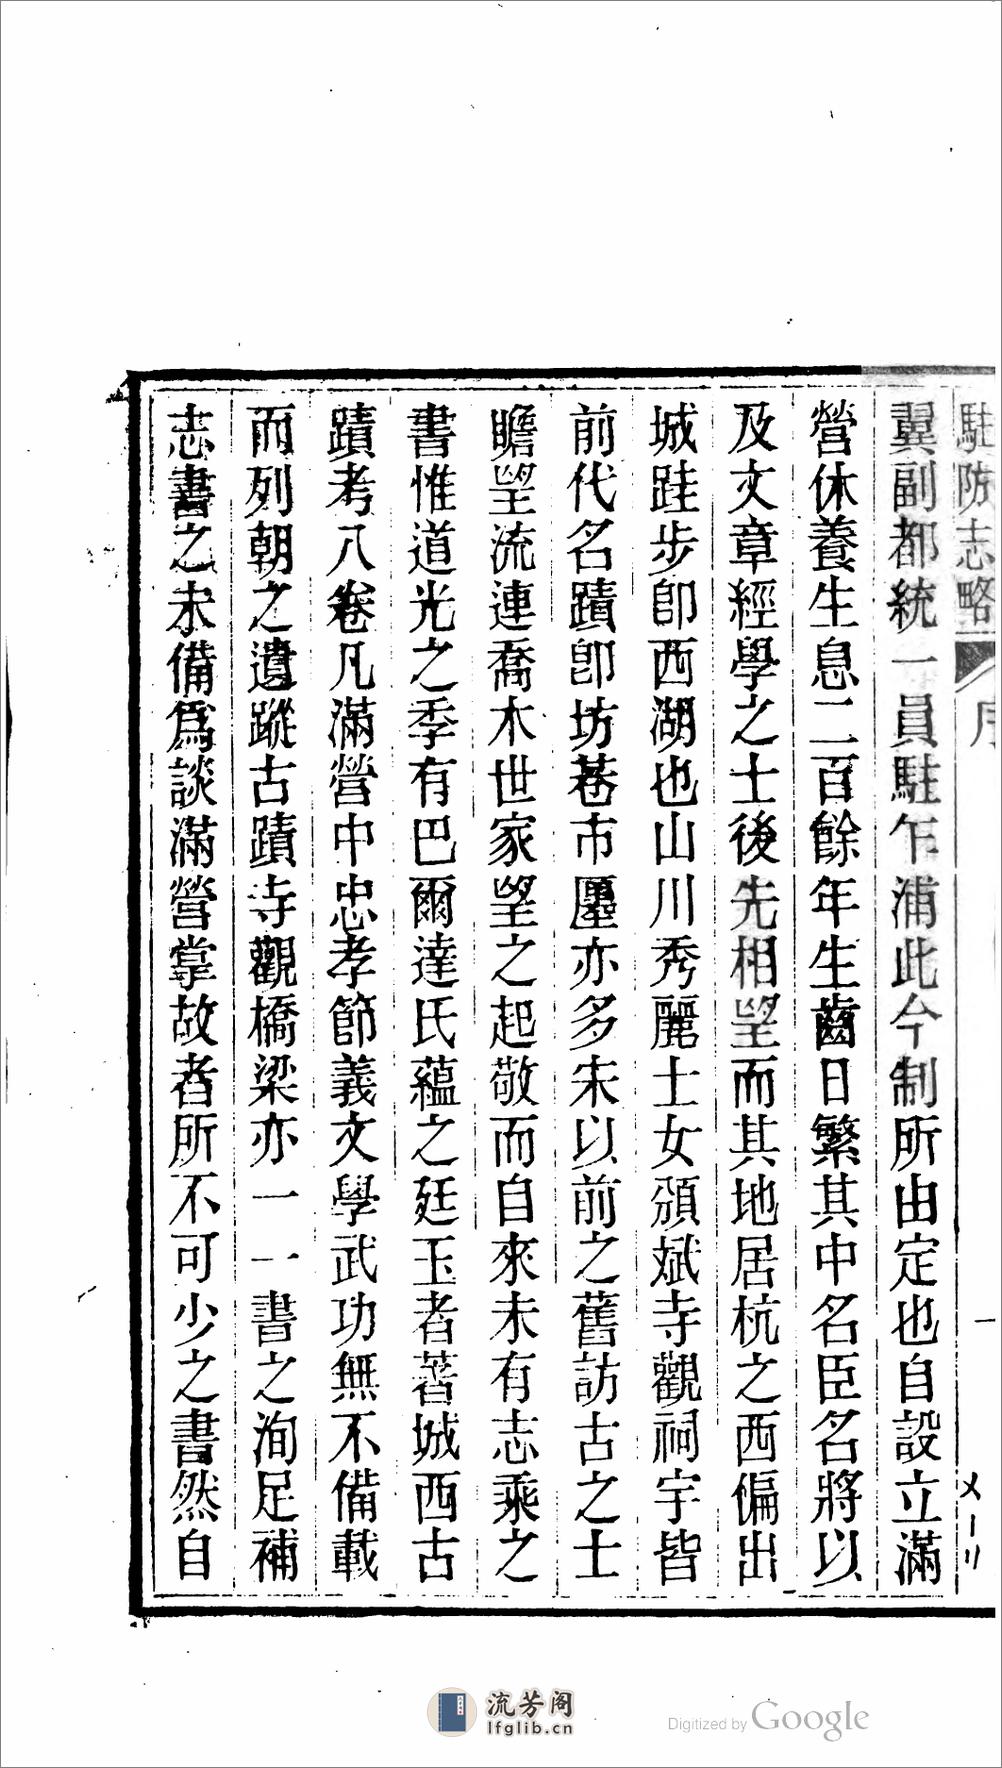 駐防志略
序
一
翼副都統一員駐乍浦此今制所由定也自設立滿
營休養生息二百餘年生齒日繁其中名臣名將以
及文章經學之士後先相望而其地居杭之西偏出
城跬步卽西湖也山川秀麗士女頒斌寺觀祠宇皆
前代名蹟卽坊巷市廛亦多宋以前之舊訪古之士
瞻望流連喬木世家望之起敬而自來未有志乘之
書惟道光之季有巴爾達氏蘊之廷玉者著城西古
蹟考八卷凡滿營中忠孝節義文學武功無不備載
而列朝之遺蹤古蹟寺觀橋梁亦一一書之洵足補
志書之未備爲談滿營掌故者所不可少之書然自
流芳阁
lfglib.cn
Digitized by Google